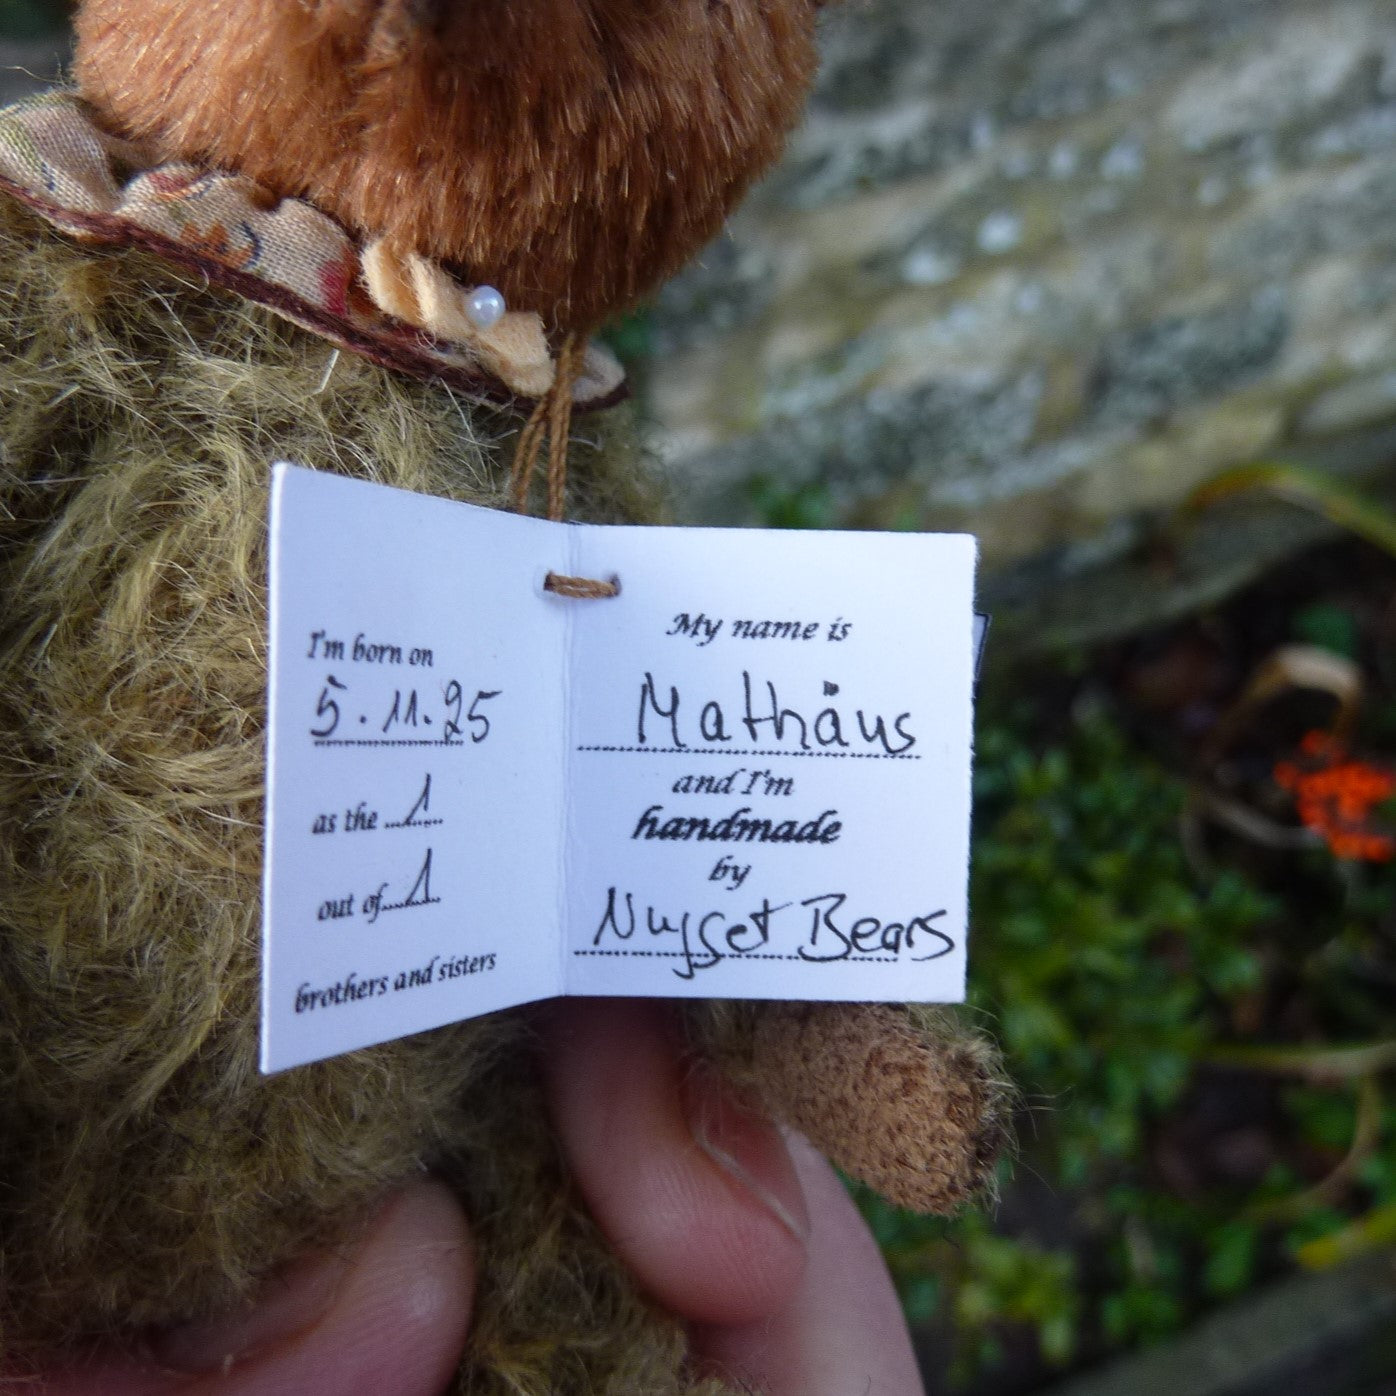 I'm born on
5.11.25
as the 1
out of 1
brothers and sisters
My name is
Mathäus
and I'm
handmade
by
Nugget Bears